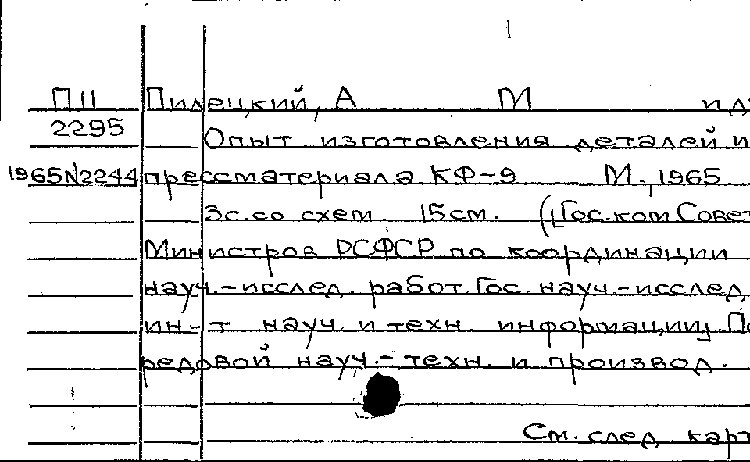 П11 Пилецкий, А М и др
2295
Опыт изготовления деталей и
1965N2244 прессматериала КФ-9 М., 1965
3с. со схем 15см. (Гос. ком Совет
Министров РСФСР по координации
науч.-исслед. работ Гос. науч.-исслед
ин-т науч. и техн. информации) Пе
редовой науч.-техн. и производ.
См. след карт